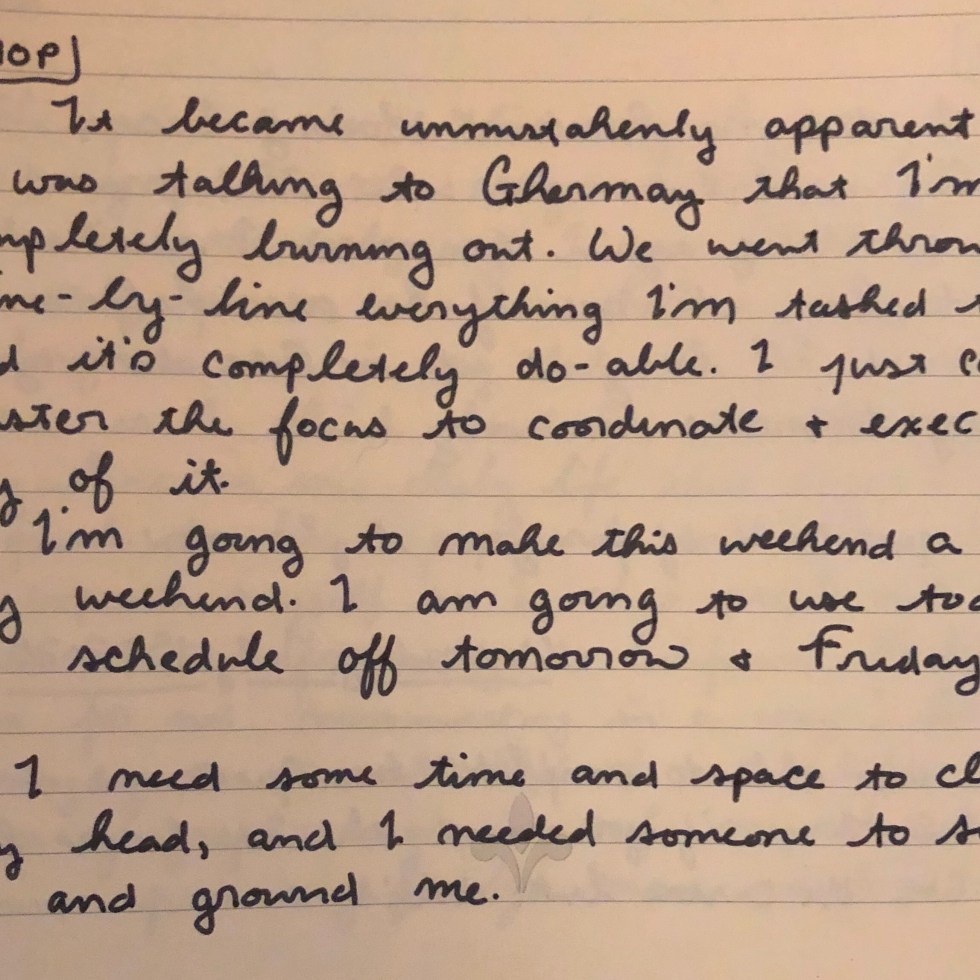 10P
It became unmistakenly apparent
was talking to Ghermay that I'm
mpletely burning out. We went throu
ine-by-line everything I'm tasked
d it's completely do-able. I just c
uster the focus to coordinate + exec
y of it.
I'm going to make this weekend a
y weekend. I am going to use tod
schedule off tomorrow & Friday
I need some time and space to cl
y head, and I needed someone to s
and ground me.